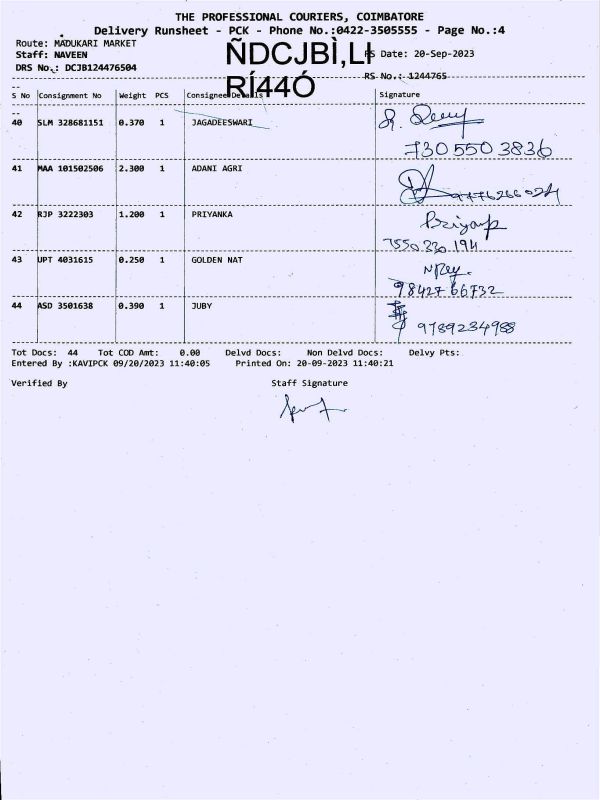 THE PROFESSIONAL COURIERS, COIMBATORE
Delivery Runsheet - PCK - Phone No.:0422-3505555 - Page No.:4
Route: MADUKARI MARKET
Staff: NAVEEN
ÑDCJBÌ,LI
RS Date: 20-Sep-2023
DRS No.: DCJB124476504
RÍ44Ó
RS No.: 1244765
S No Consignment No Weight PCS Consignee Details Signature
40 SLM 328681151 0.370 1 JAGADEESWARI
730 550 3836
41 MAA 101502506 2.300 1 ADANI AGRI
42 RJP 3222303 1.200 1 PRIYANKA Priyanka
7550 330 194
43 UPT 4031615 0.250 1 GOLDEN NAT
98427 66732
44 ASD 3501638 0.390 1 JUBY
9789234988
Tot Docs: 44 Tot COD Amt: 0.00 Delvd Docs: Non Delvd Docs: Delvy Pts:
Entered By :KAVIPCK 09/20/2023 11:40:05 Printed On: 20-09-2023 11:40:21
Verified By Staff Signature